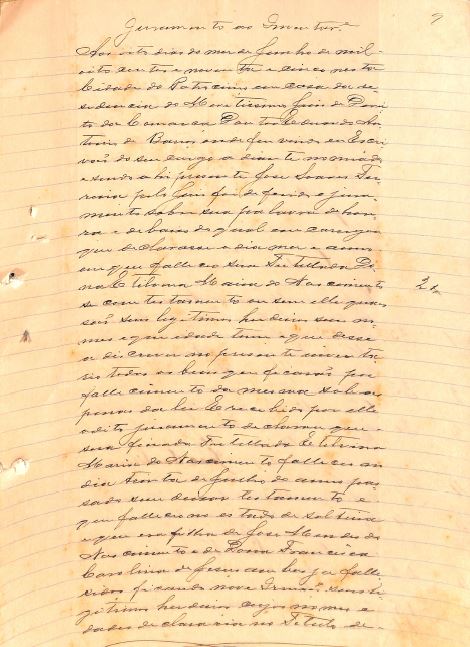 Juramento ao Inventr.e
9
Aos oito dias do mes de Junho de mil
oito centos e noventa e cinco nesta
Cidade do Patrocinio em casa da re
sidencia do Meretissimo Juis de Derei
to da Comarca Doutor Eduardo An
tonio de Barros onde fui vindo eu Escri
vão do seu cargo a diante nomiado
e sendo ahi presente Jose Soares
pelo Juis foi deferido o jura
mento sobre sua palavra de hon
ra e de baixo do qual encarregou
que declarasse o dia mes e anno
em que falleceo sua Tutellada
Etelvina Maria do Nascimento
se com testamento ou sem elle quaes
são seus legitimos herdeiros seus no
mes e que idade tem e que desse
a discrever no presente inventa
rio todos os bens que ficarão por
fallecimento da mesma sob as
penas da lei E recebido por elle
o dito juramento declarou que
sua finada Tutellada Etelvina
Maria do Nascimento falleceo no
dia trinta de Junho do anno pas
sado sem deixar testamento e
que falleceo no estado de solteira
e que era filha de Jose Mendes do
Nascimento e de Dona Francisca
Carolina de Jesus ambos ja falle
cidos ficando nove Irmãos
gitimos herdeiros cujos nomes e
dades declararia no Titulo de